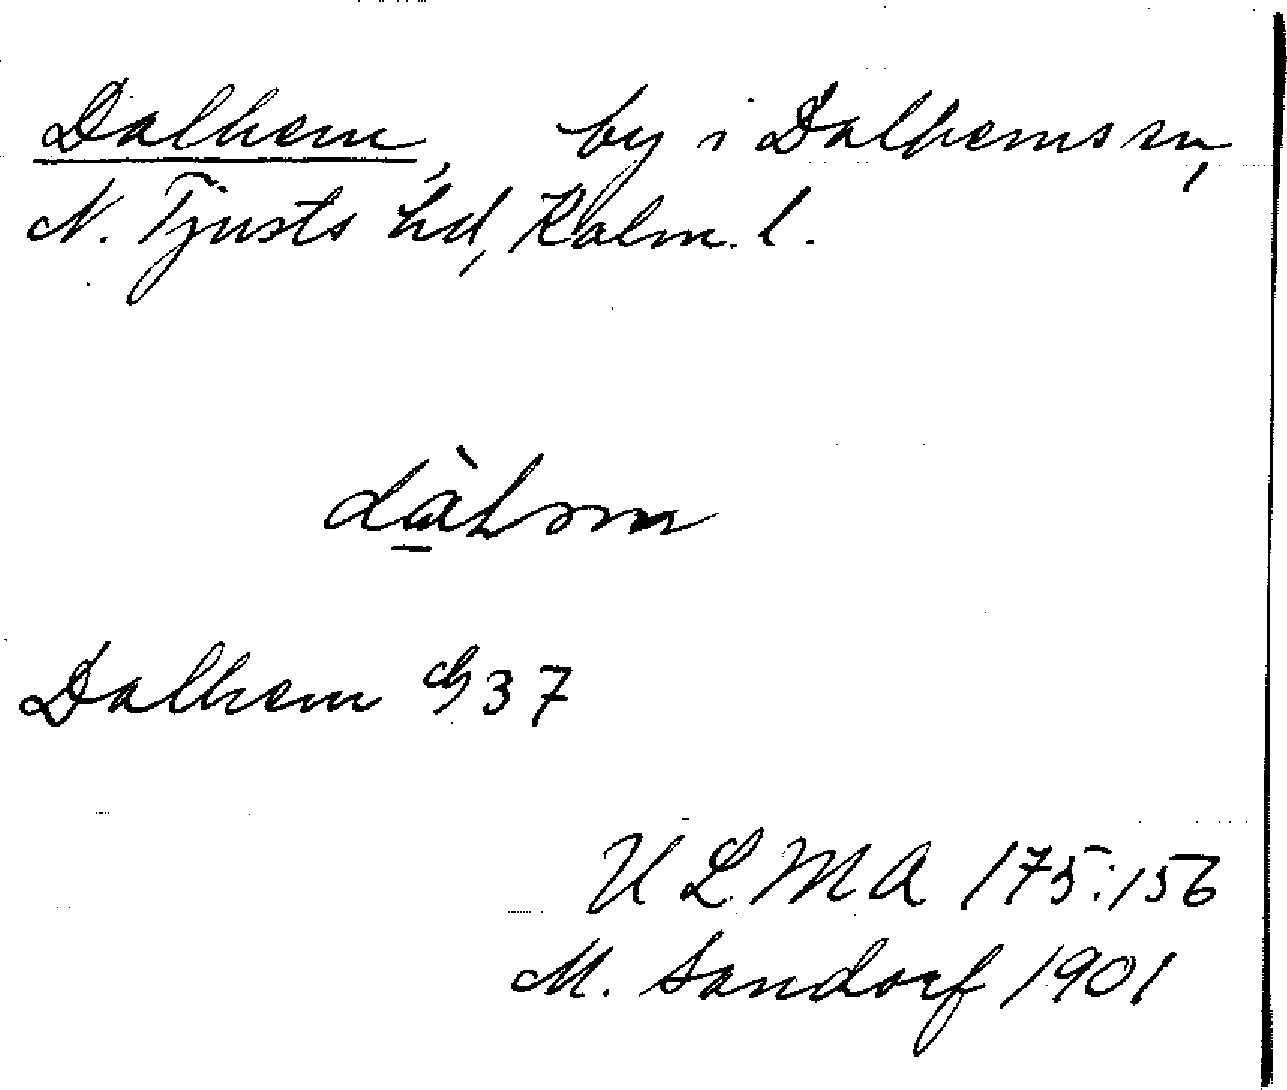 Dalhem, by i Dalhems sn,
N. Tjusts hd, Kalm. l.
Dalhem G 37
ULMA 175:156
M. Sandorf 1901